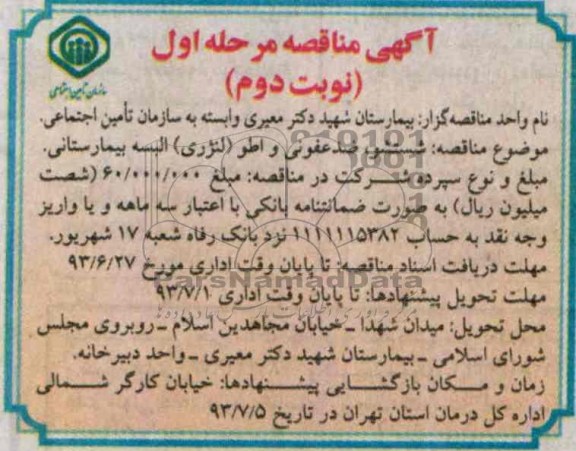 آگهی مناقصه مرحله اول
(نوبت دوم)
سازمان تأمین اجتماعی
نام واحد مناقصه‌گزار: بیمارستان شهید دکتر معیری وابسته به سازمان تأمین اجتماعی.
موضوع مناقصه: شستشو، ضدعفونی و اطو (لنژری) البسه بیمارستانی.
مبلغ و نوع سپرده شرکت در مناقصه: مبلغ ۶۰/۰۰۰/۰۰۰ (شصت
میلیون ریال) به صورت ضمانتنامه بانکی با اعتبار سه ماهه و یا واریز
وجه نقد به حساب ۱۱۱۱۱۱۵۳۸۲ نزد بانک رفاه شعبه ۱۷ شهریور.
مهلت دریافت اسناد مناقصه: تا پایان وقت اداری مورخ ۹۳/۶/۲۷
مهلت تحویل پیشنهادها: تا پایان وقت اداری ۹۳/۷/۱
محل تحویل: میدان شهدا ـ خیابان مجاهدین اسلام ـ روبروی مجلس
شورای اسلامی ـ بیمارستان شهید دکتر معیری ـ واحد دبیرخانه.
زمان و مکان بازگشایی پیشنهادها: خیابان کارگر شمالی
اداره کل درمان استان تهران در تاریخ ۹۳/۷/۵
ParsNamadData